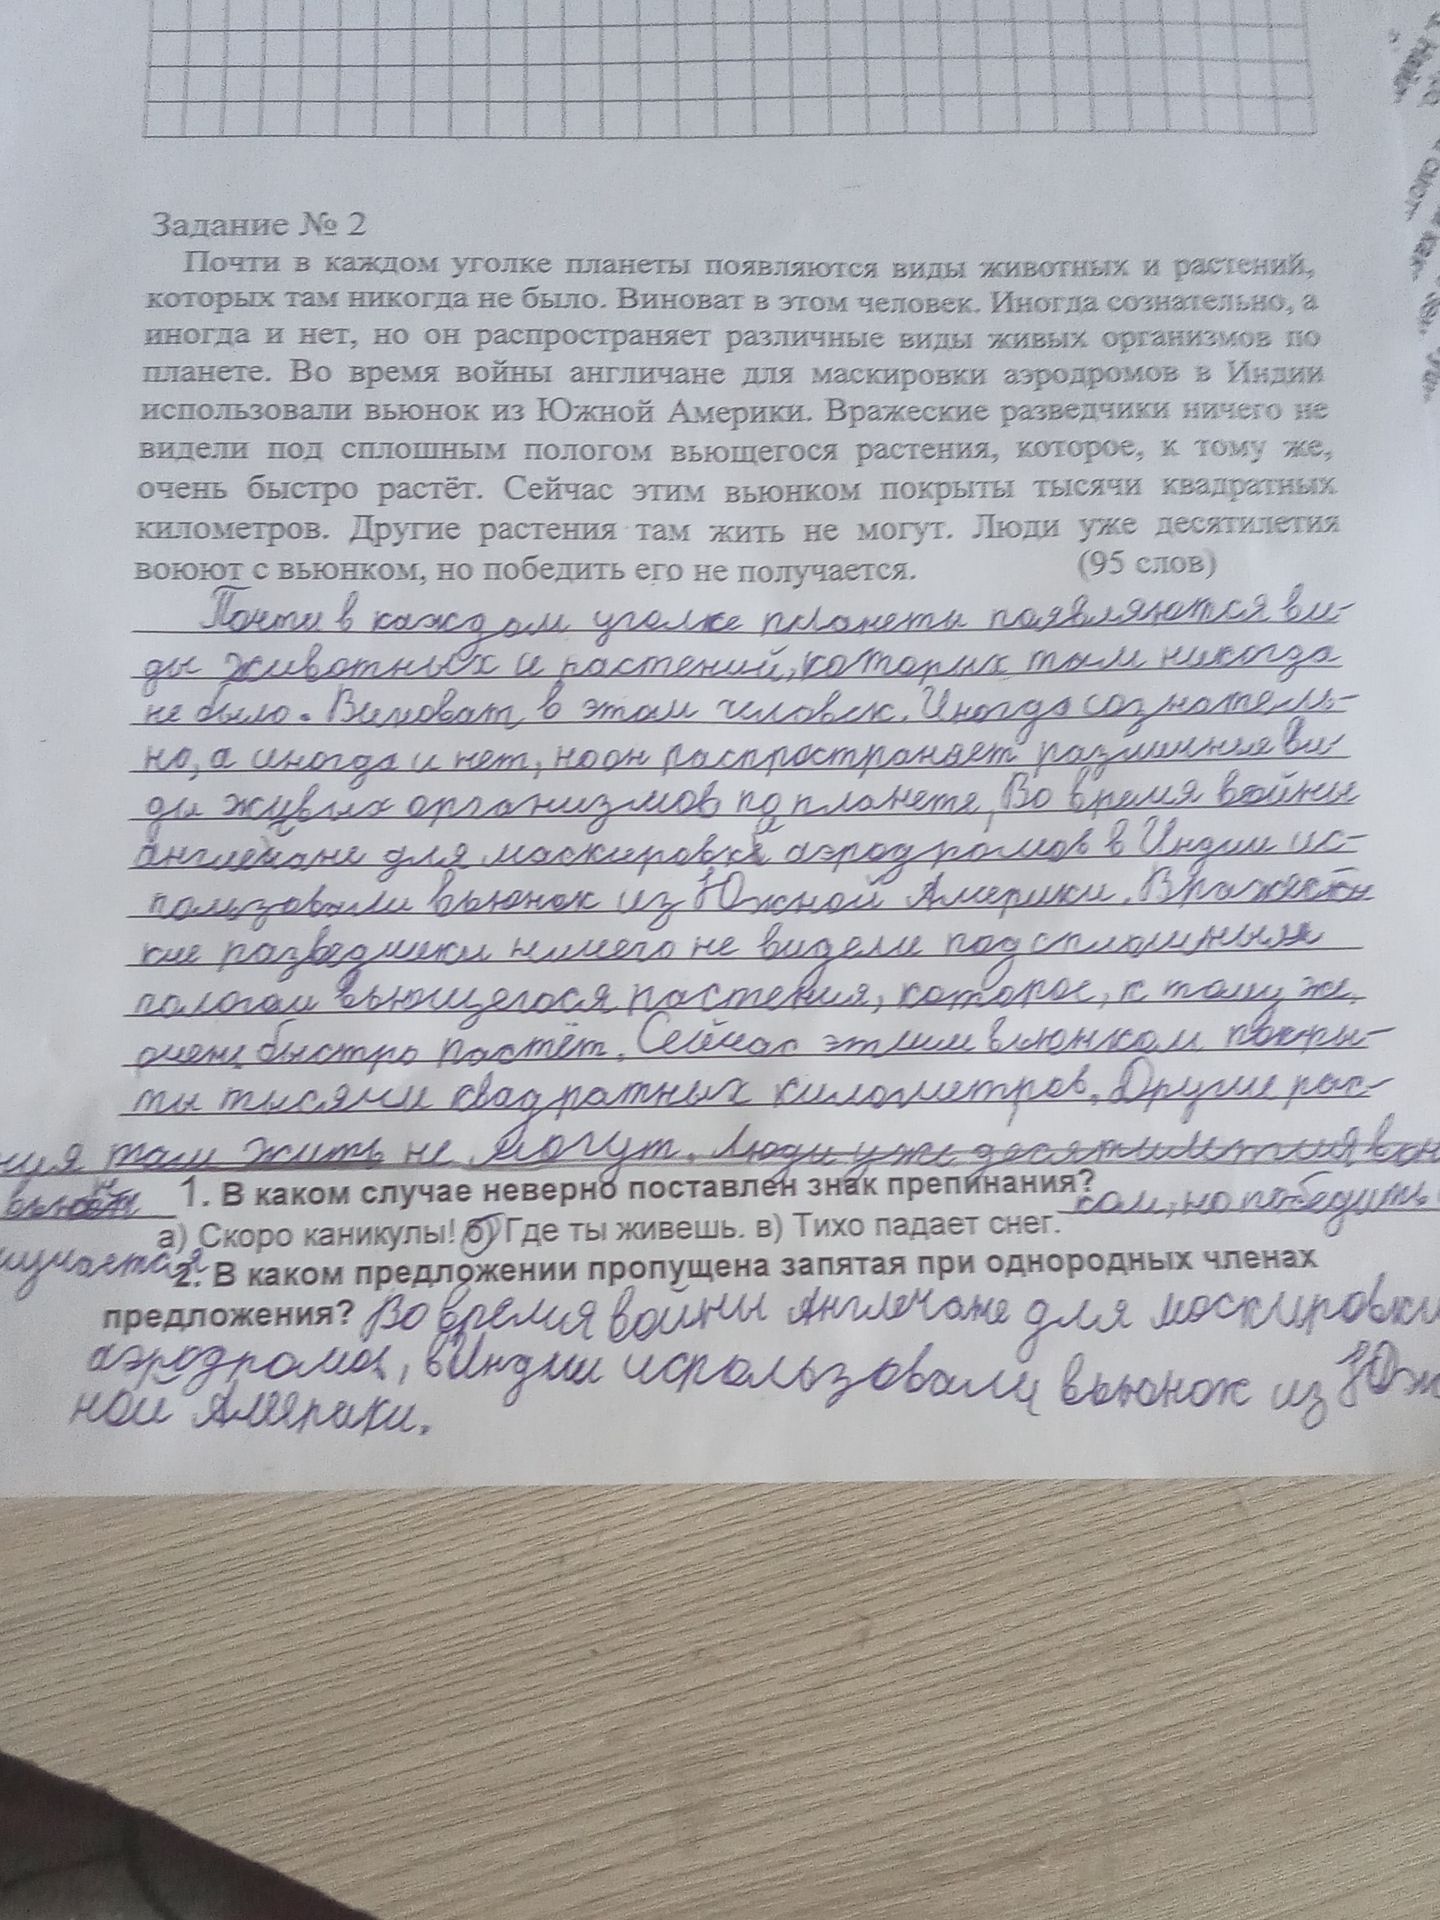 Задание № 2
Почти в каждом уголке планеты появляются виды животных и растений,
которых там никогда не было. Виноват в этом человек. Иногда сознательно, а
иногда и нет, но он распространяет различные виды живых организмов по
планете. Во время войны англичане для маскировки аэродромов в Индии
использовали вьюнок из Южной Америки. Вражеские разведчики ничего не
видели под сплошным пологом вьющегося растения, которое, к тому же,
очень быстро растёт. Сейчас этим вьюнком покрыты тысячи квадратных
километров. Другие растения там жить не могут. Люди уже десятилетия
воюют с вьюнком, но победить его не получается. (95 слов)
Почти в каждом уголке планеты появляются ви-
ды животных и растений, которых там никогда
не было. Виноват в этом человек. Иногда сознатель-
но, а иногда и нет, но он распространяет различные ви-
ды живых организмов по планете, Во время войны
англечане для маскировки аэродромов в Индии ис-
пользовали вьюнок из Южной Америки.
кие разведчики ничего не видели под сплошным
пологом вьющегося растения, которое, к тому же,
очень быстро растёт. Сейчас этим вьюнком покры-
ты тысячи квадратных километров. Другие рас-
ния там жить не могут. Люди уже десятилетия
1. В каком случае неверно поставлен знак препинания? ком, но победить
а) Скоро каникулы! б) Где ты живешь. в) Тихо падает снег.
2. В каком предложении пропущена запятая при однородных членах
предложения? Во время войны Англечане для маскировки
аэродромов, в Индии использовали вьюнок из Юж
ной Америки.